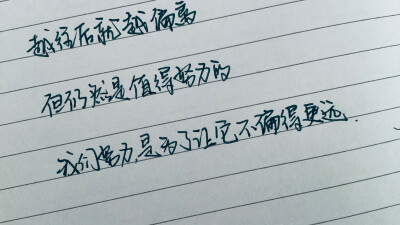 越往后就越偏离
但仍然是值得努力的
我们努力是为了让它不偏得更远.